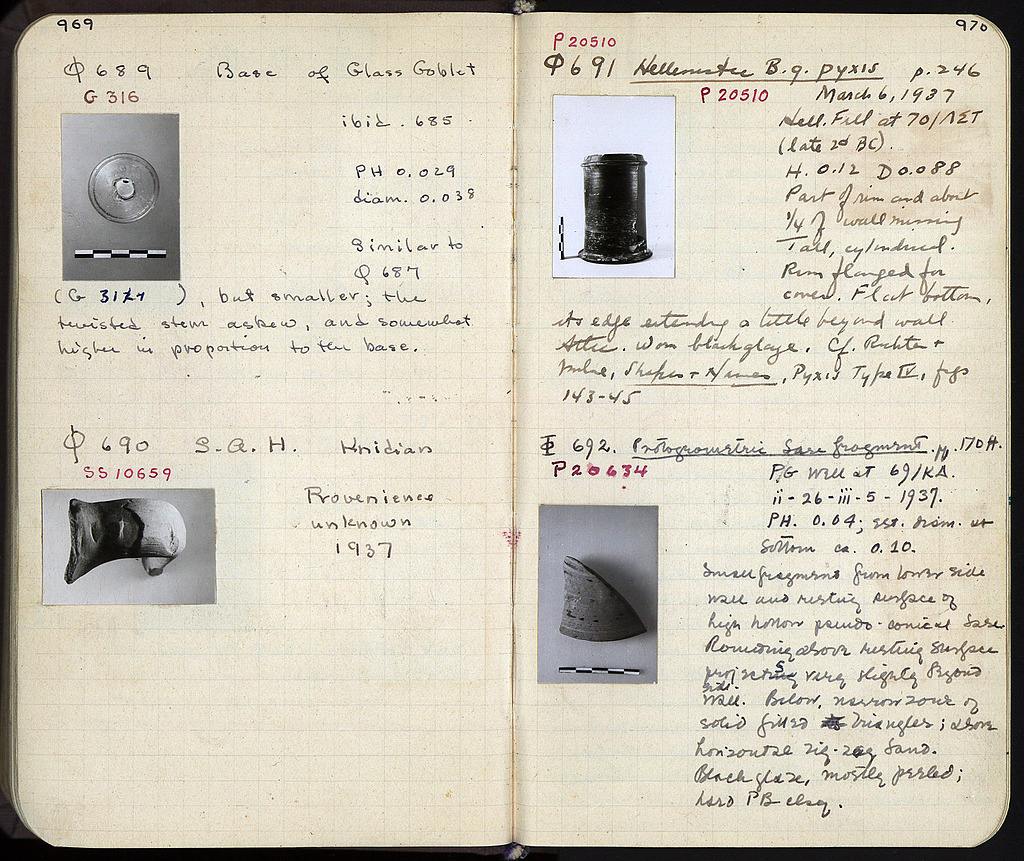 969
Φ 689 Base of Glass Goblet
G 316
ibid. 685.
PH 0.029
diam. 0.038
Similar to
Φ 687
(G 317), but smaller; the
twisted stem askew, and somewhat
higher in proportion to the base.
Φ 690 S.A.H. Knidian
SS 10659
Provenience
unknown
1937
970
P 20510
Φ 691 Hellenistic B.g. pyxis p. 246
P 20510 March 6, 1937
Hell. Fill at 70/ΛΣΤ
(late 2d BC).
H. 0.12 D 0.088
Part of rim and about
1/4 of wall missing
Tall, cylindrical.
Rim flanged for
cover. Flat bottom,
its edge extending a little beyond wall
Attic. Worn black glaze. Cf. Richter +
Milne, Shapes + Names, Pyxis Type IV, figs
143-45
Φ 692. Protogeometric base fragment. p. 170 ff.
P 20634
PG Well at 69/ΚΑ.
ii-26-iii-5-1937.
PH. 0.04; est. diam. at
bottom ca. 0.10.
Small fragment from lower side
wall and resting surface of
high hollow pseudo-conical base.
Rounding above resting surface
projects very slightly beyond
side wall. Below, narrow zone of
solid filled triangles; above
horizontal zig-zag band.
Black glaze, mostly peeled;
hard PB clay.